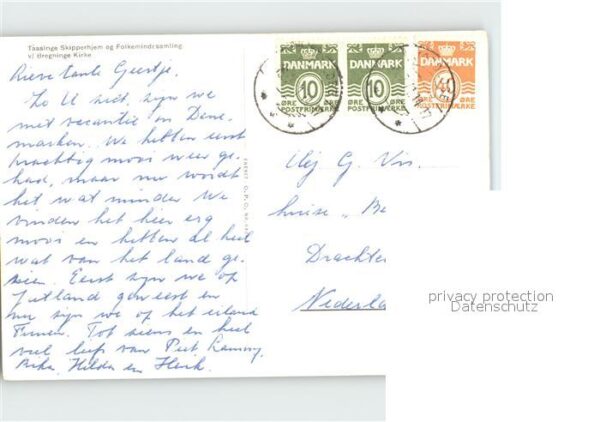 Taasinge Skipperhjem og Folkemindesamling
v/ Bregninge Kirke
Lieve tante Geertje.
Zo U ziet, zijn we
met vacantie in Dene-
marken. We hebben eerst
prachtig mooi weer ge-
had, maar nu wordt
het wat minder. We
vinden het hier erg
mooi en hebben al heel
wat van het land ge-
zien. Eerst zijn we op
Jutland geweest en
nu zijn we op het eiland
Funen. Tot ziens en heel
veel liefs van Piet,
Hilda en Henk.
DANMARK
10
ØRE
POSTFRIMÆRKE
DANMARK
10
ØRE
POSTFRIMÆRKE
DANMARK
40
ØRE
POSTFRIMÆRKE
Mej G. Vis.
huize „Be
Drachte
Nederla
privacy protection
Datenschutz